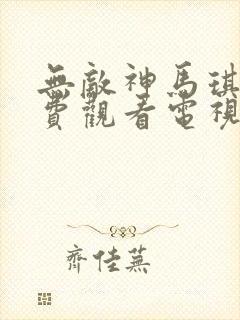 無敵神馬琪
費觀看電視
齊佳蕪